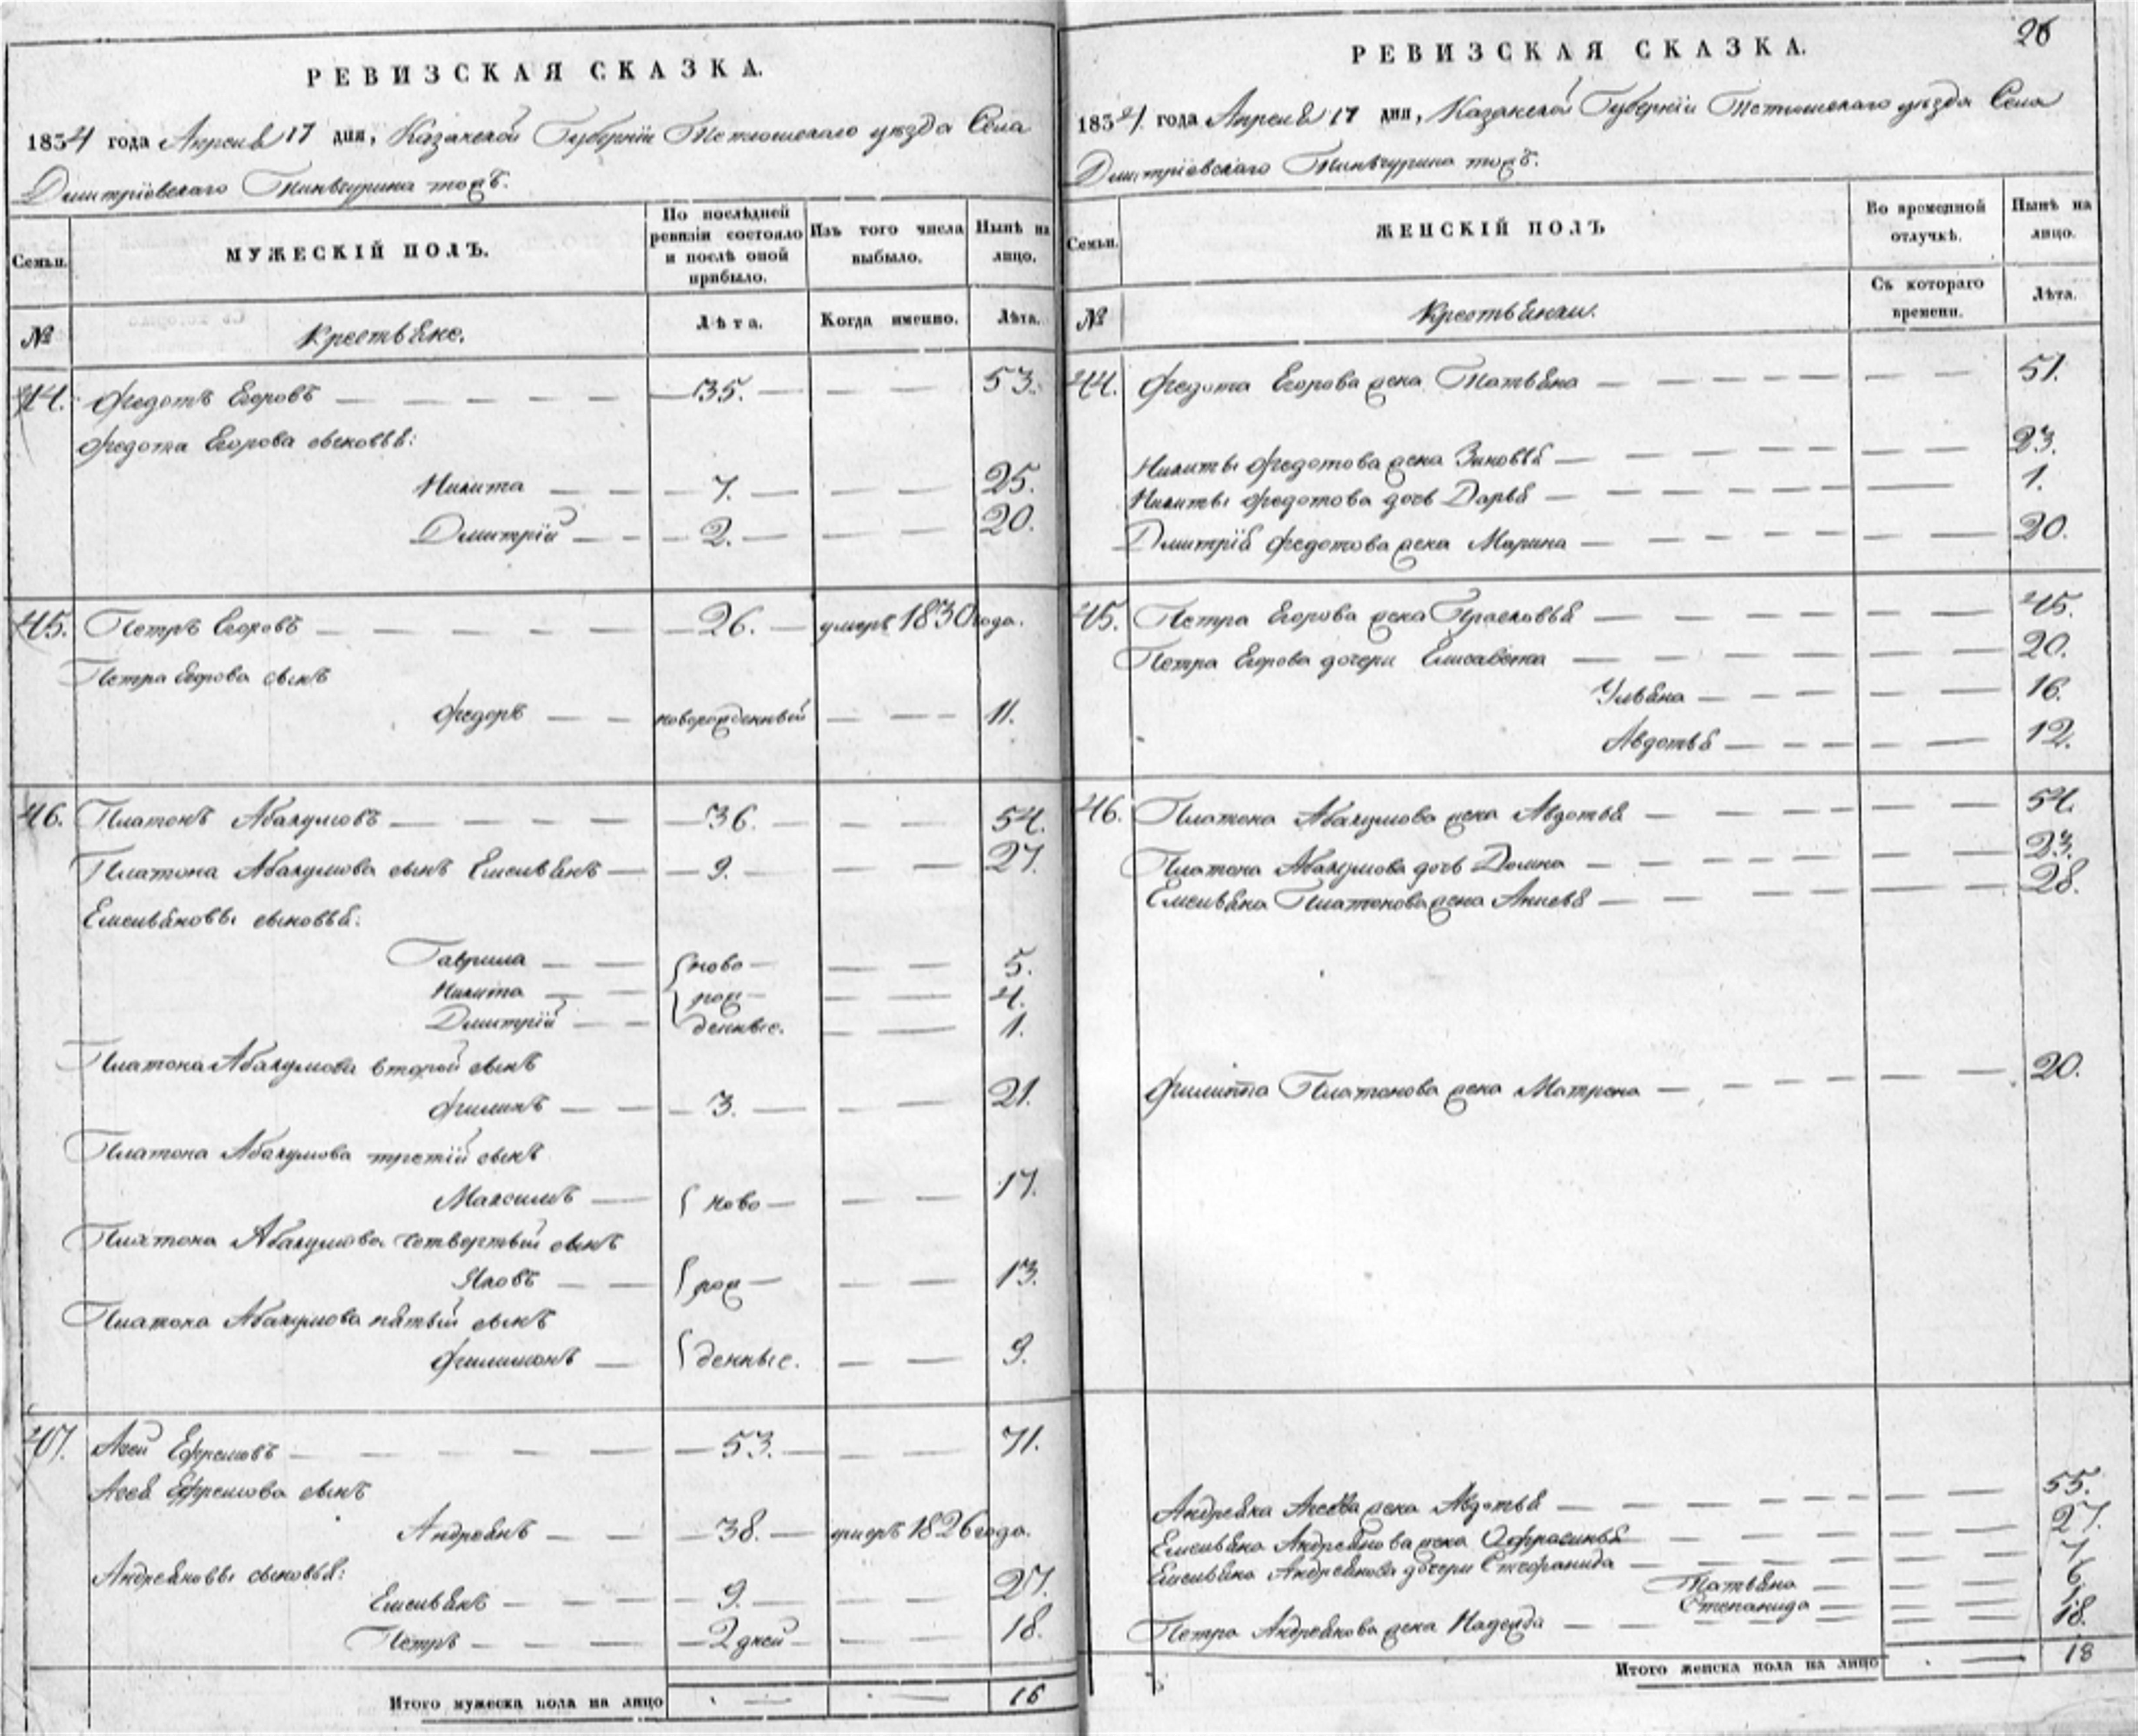 РЕВИЗСКАЯ СКАЗКА.
1834 года Апреля 17 дня, Казанской Губернїи Тетюшскаго уѣзда Села
Дмитрїевскаго тожъ.
Семьи.
МУЖЕСКІЙ ПОЛЪ.
По послѣдней ревизіи состояло и послѣ оной прибыло.
Изъ того числа выбыло.
Нынѣ на лицо.
№
Крестьяне.
Лѣта.
Когда именно.
Лѣта.
44. Федотъ Егоровъ — 35. — 53.
Федота Егорова сыновья:
Никита — 7. — 25.
Дмитрїй — 2. — 20.
45. Петръ Егоровъ — 26. — умеръ 1830 года.
Петра Егорова сынъ
Федоръ — новорожденный — 11.
46. Платонъ Абакумовъ — 36. — 54.
Платона Абакумова сынъ Емельянъ — 9. — 27.
Емельяновы сыновья:
Гаврила — ново — 5.
Никита — рож — 4.
Дмитрїй — денные. — 1.
Платона Абакумова второй сынъ
Филипъ — 3. — 21.
Платона Абакумова третїй сынъ
Максимъ — ново — 17.
Платона Абакумова четвертый сынъ
Яковъ — рож — 13.
Платона Абакумова пятый сынъ
Филимонъ — денные. — 9.
47. Агей Ефремовъ — 53. — 71.
Агея Ефремова сынъ
Андреянъ — 38. — умеръ 1826 года.
Андреяновы сыновья:
Емельянъ — 9. — 27.
Петръ — 2 дней — 18.
Итого мужеска пола на лицо — 16
26
РЕВИЗСКАЯ СКАЗКА.
1834 года Апреля 17 дня, Казанской Губернїи Тетюшскаго уѣзда Села
Дмитрїевскаго тожъ.
Семьи.
ЖЕНСКІЙ ПОЛЪ
Во временной отлучкѣ.
Нынѣ на лицо.
№
Крестьянки.
Съ котораго времени.
Лѣта.
44. Федота Егорова жена Татьяна — 51.
Никиты Федотова жена Зиновья — 23.
Никиты Федотова дочь Дарья — 1.
Дмитрїя Федотова жена Марина — 20.
45. Петра Егорова жена Прасковья — 45.
Петра Егорова дочери Елисавета — 20.
Ульяна — 16.
Авдотья — 12.
46. Платона Абакумова жена Авдотья — 54.
Платона Абакумова дочь Домна — 23.
Емельяна Платонова жена — 28.
Филиппа Платонова жена Матрена — 20.
Андреяна Агеева жена Авдотья — 55.
Емельяна Андреянова жена Офросинья — 27.
Емельяна Андреянова дочери Стефанида — 7.
Татьяна — 6.
Степанида — 1.
Петра Андреянова жена Надежда — 18.
Итого женска пола на лицо — 18